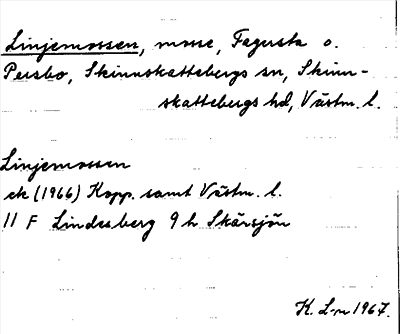 Linjemossen, mosse, Fagersta o.
Persbo, Skinnskattebergs sn, Skinn-
skattebergs hd, Västm. l.
Linjemossen
ek (1966) Kopp. samt Västm. l.
11 F Lindesberg 9 h Skärsjön
K. L-n 1967.